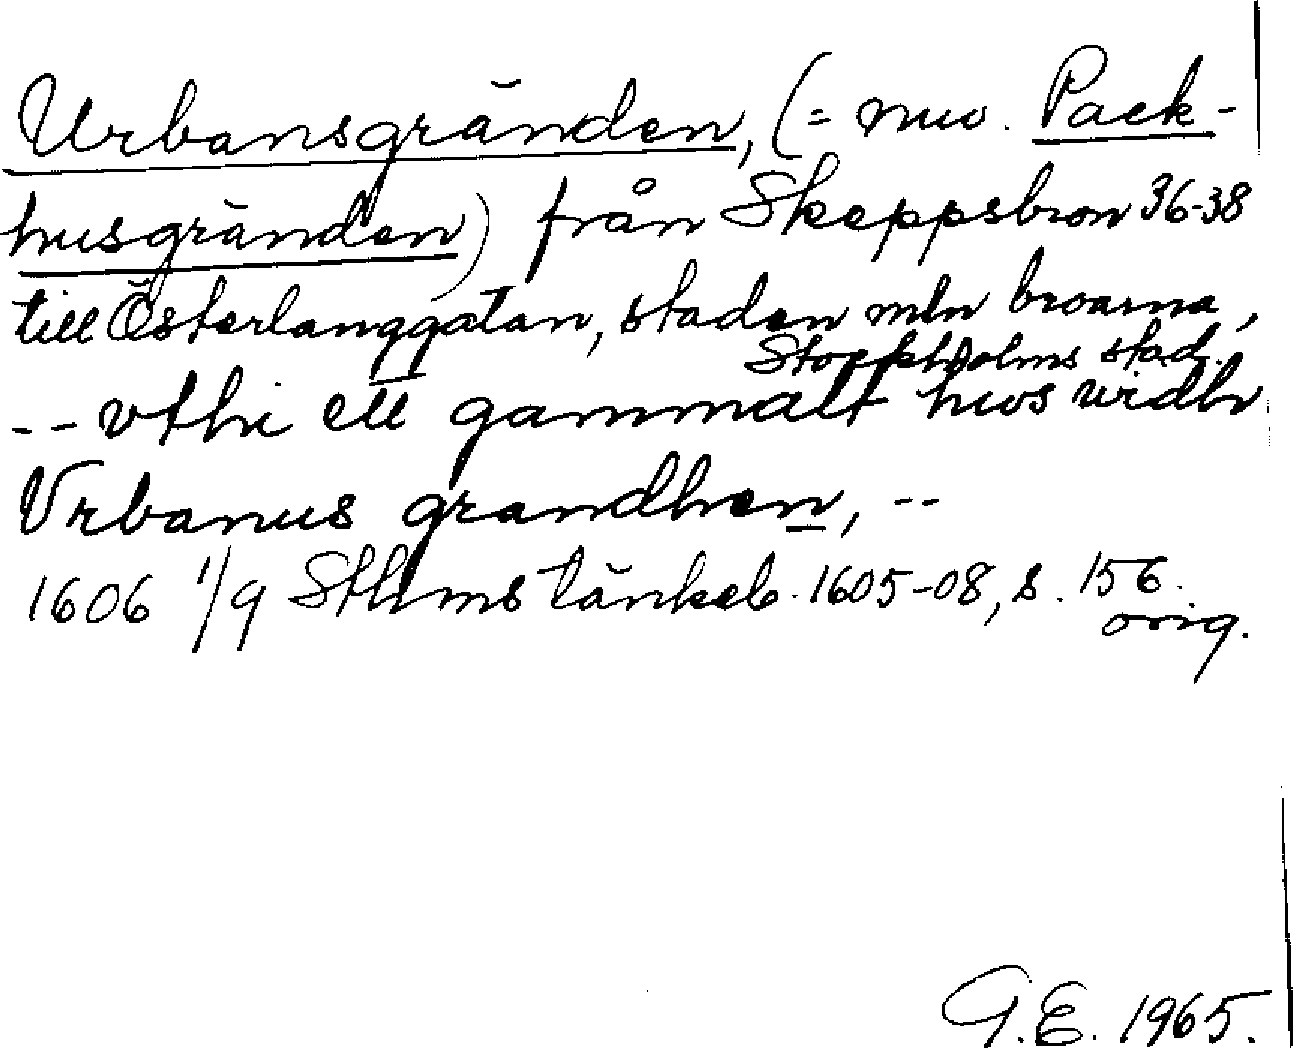 Urbansgränden, (= nuv. Pack-
husgränden) från Skeppsbron 36-38
till Österlånggatan, staden mln broarna,
Stockholms stad.
-- vthi ett gammalt hws widh
Vrbanus grandhen, --
1606 1/9 Sthms tänkeb. 1605-08, s. 156.
orig.
G.E. 1965.